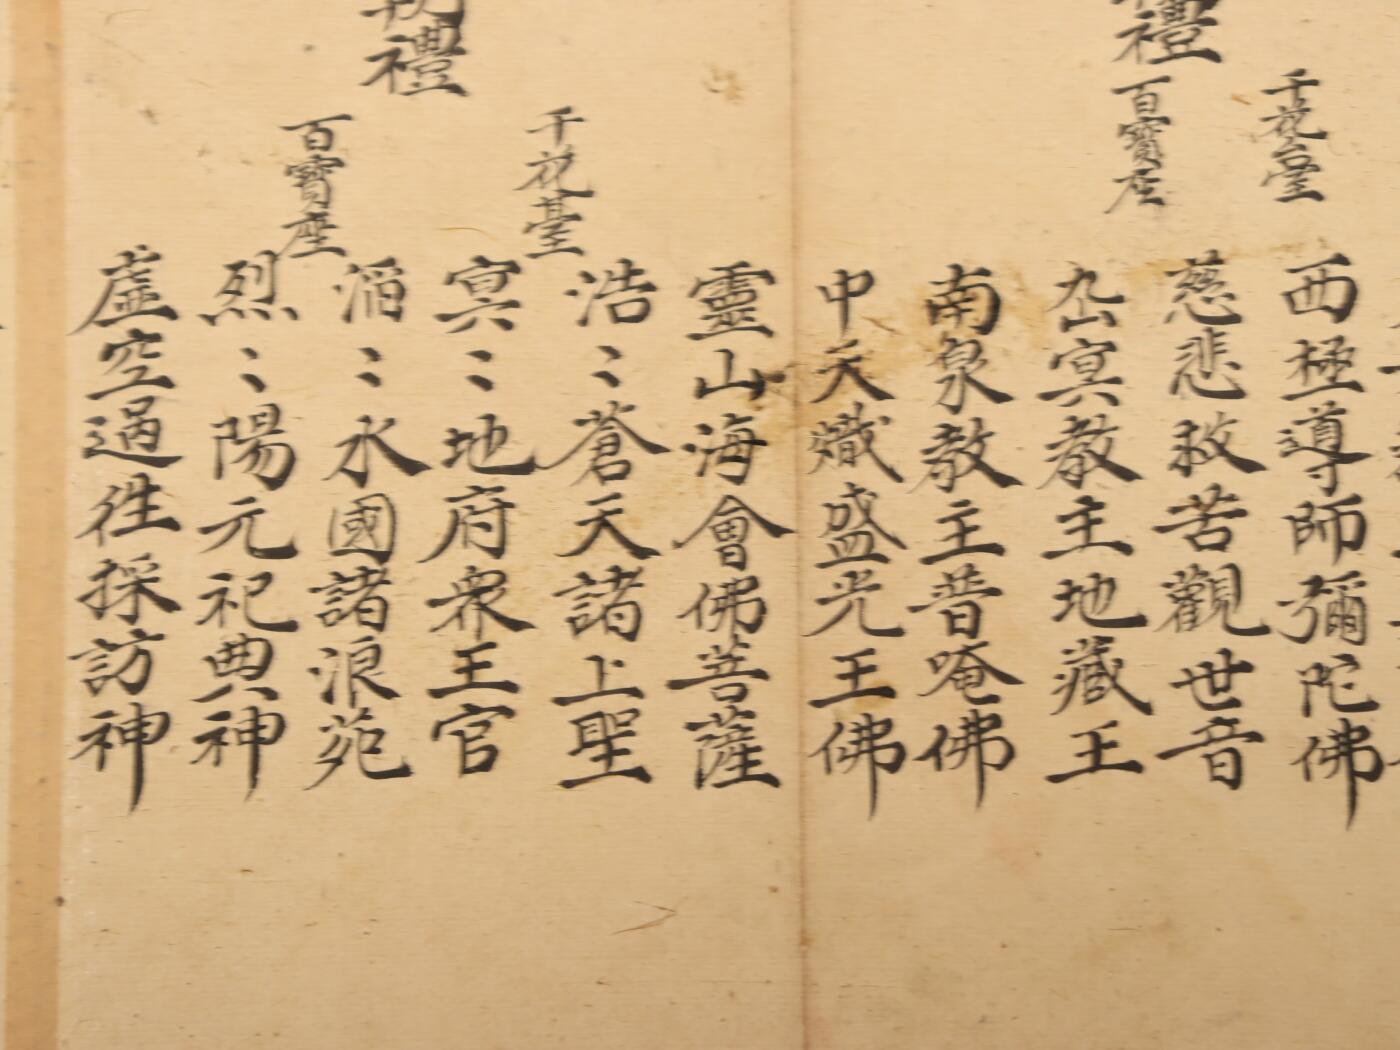 千花臺
百寶座
禮
西極導師彌陀佛
慈悲救苦觀世音
幽冥教主地藏王
南泉教主普唵佛
中天熾盛光王佛
千花臺
百寶座
禮
靈山海會佛菩薩
浩〻蒼天諸上聖
冥〻地府衆王官
滔〻水國諸浪苑
烈〻陽元祀典神
虛空過徃採訪神